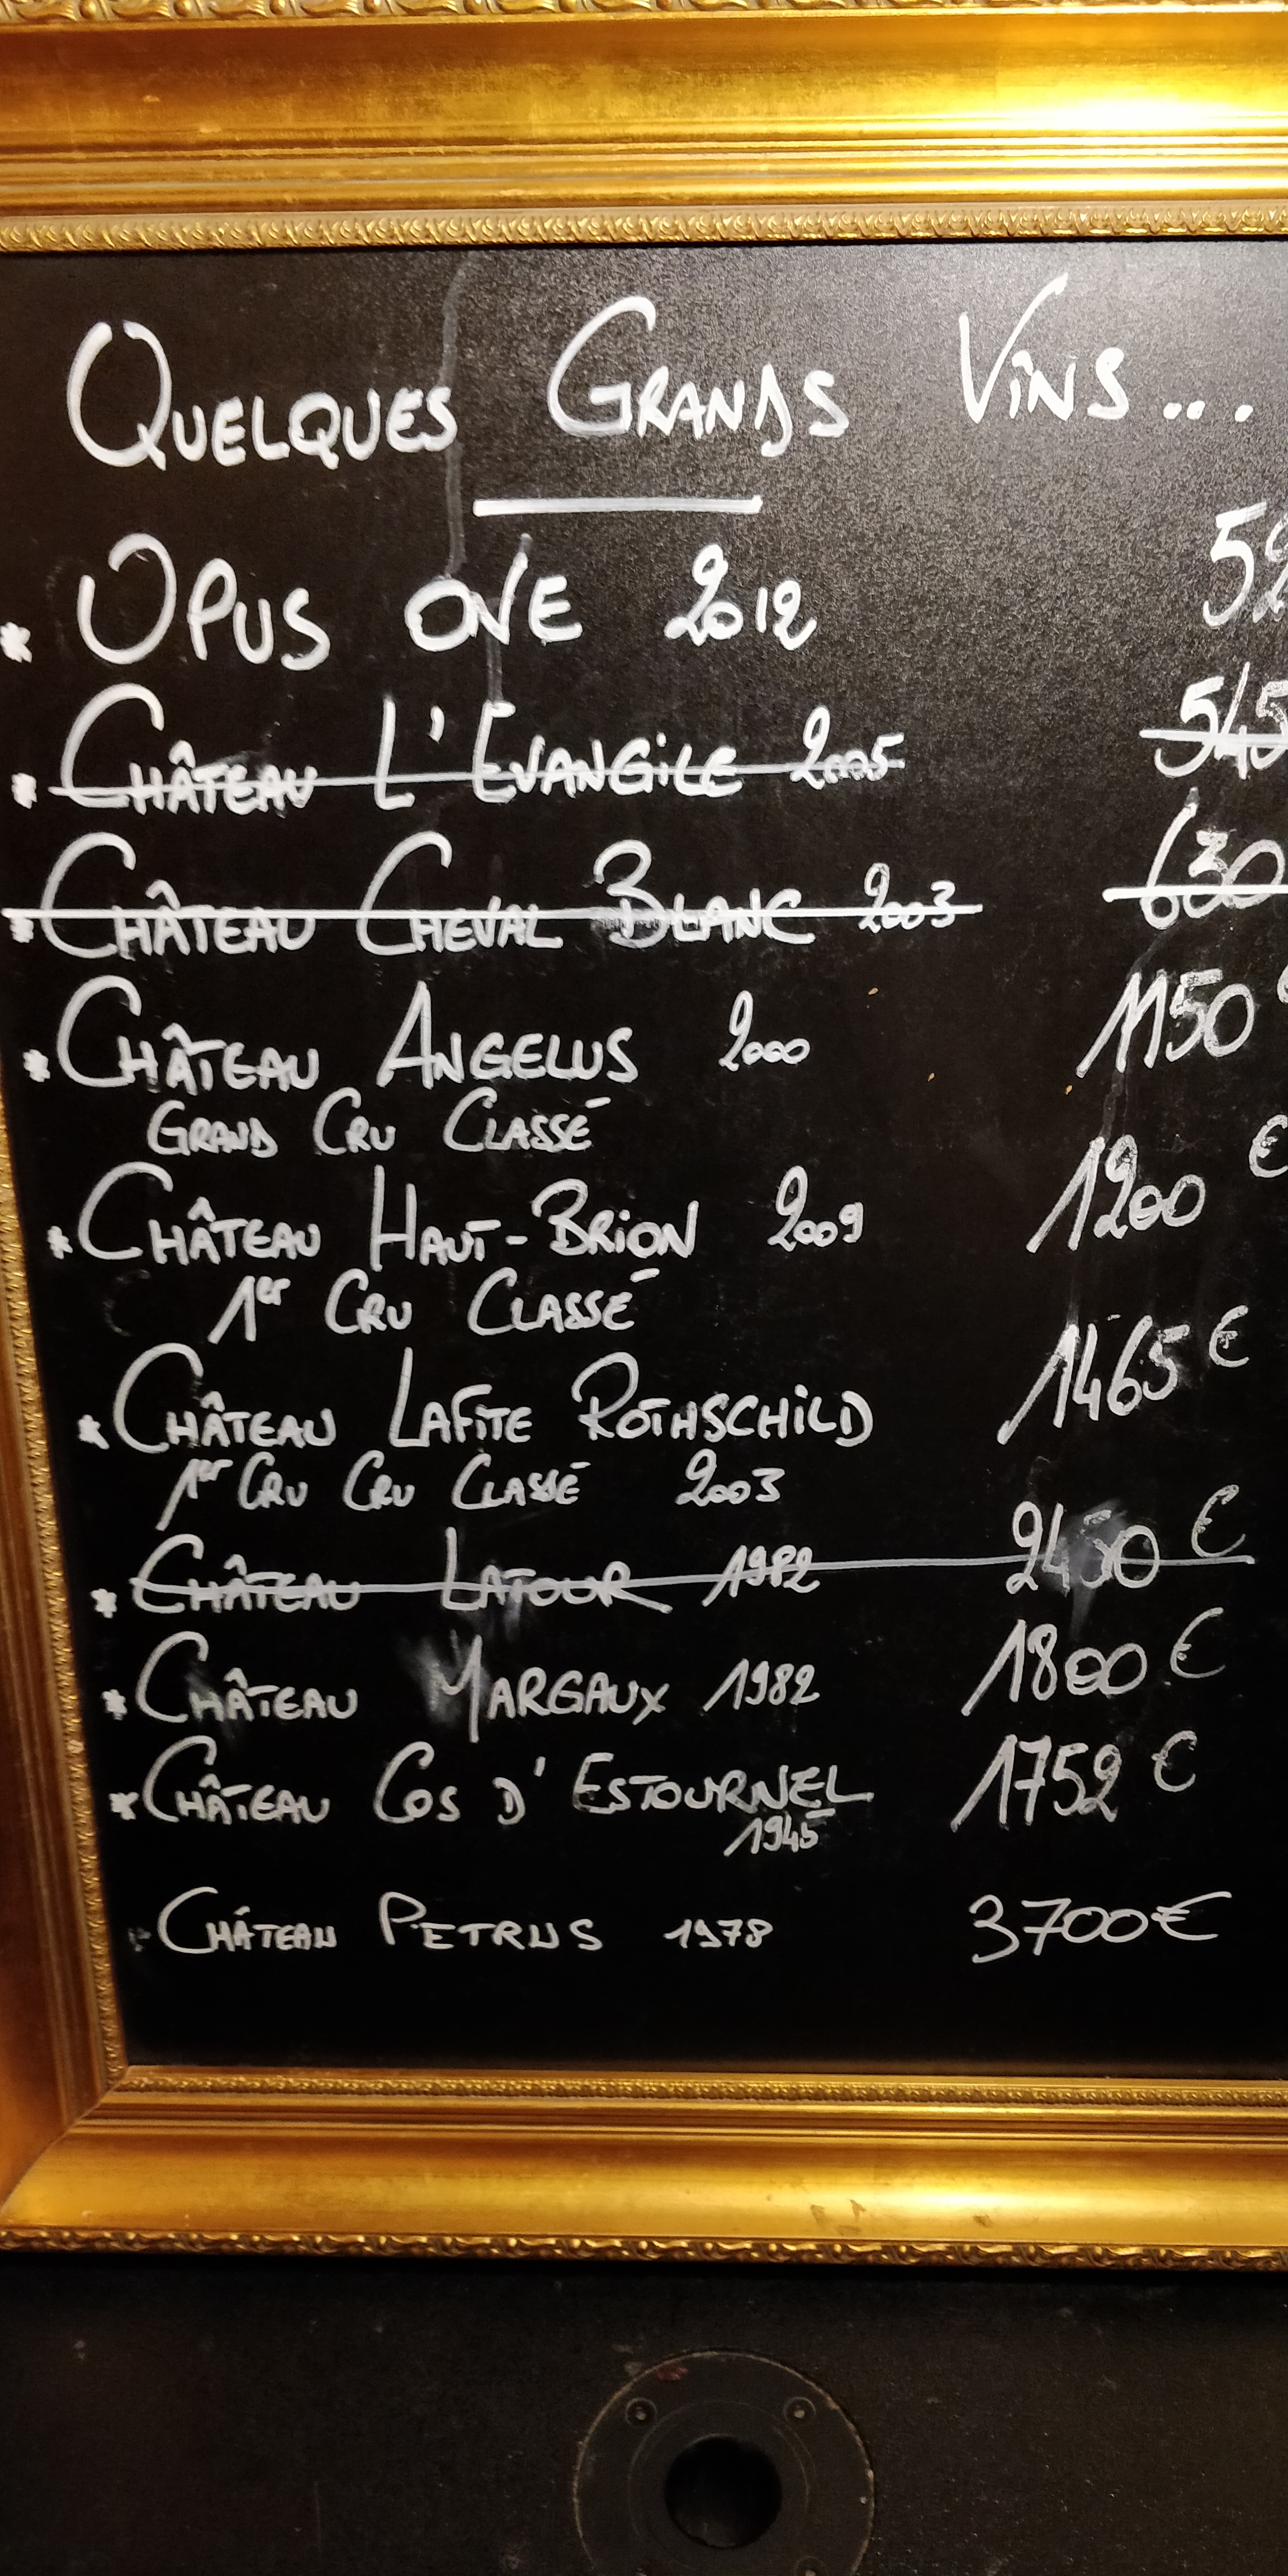 Quelques Grands Vins...
* Opus One 2012 52
* Château L'Evangile 2005 545
* Château Cheval Blanc 2003 630
* Château Angelus 2000 1150
Grand Cru Classé
* Château Haut-Brion 2009 1200 €
1er Cru Classé
* Château Lafite Rothschild 1465 €
1er Cru Cru Classé 2003
* Château Latour 1982 2450 €
* Château Margaux 1982 1800 €
* Château Cos d'Estournel 1752 €
1945
Château Petrus 1978 3700€